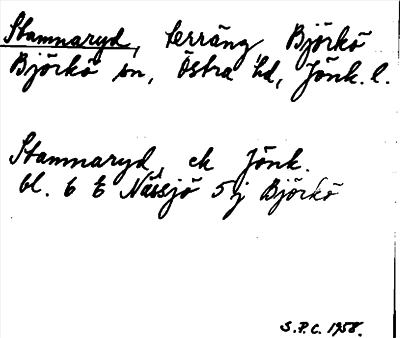 Stamnaryd, terräng Björkö
Björkö sn, Östra hd, Jönk. l.
Stamnaryd, ek Jönk.
bl. 6 E Nässjö 5 j Björkö
S.P.C. 1958.